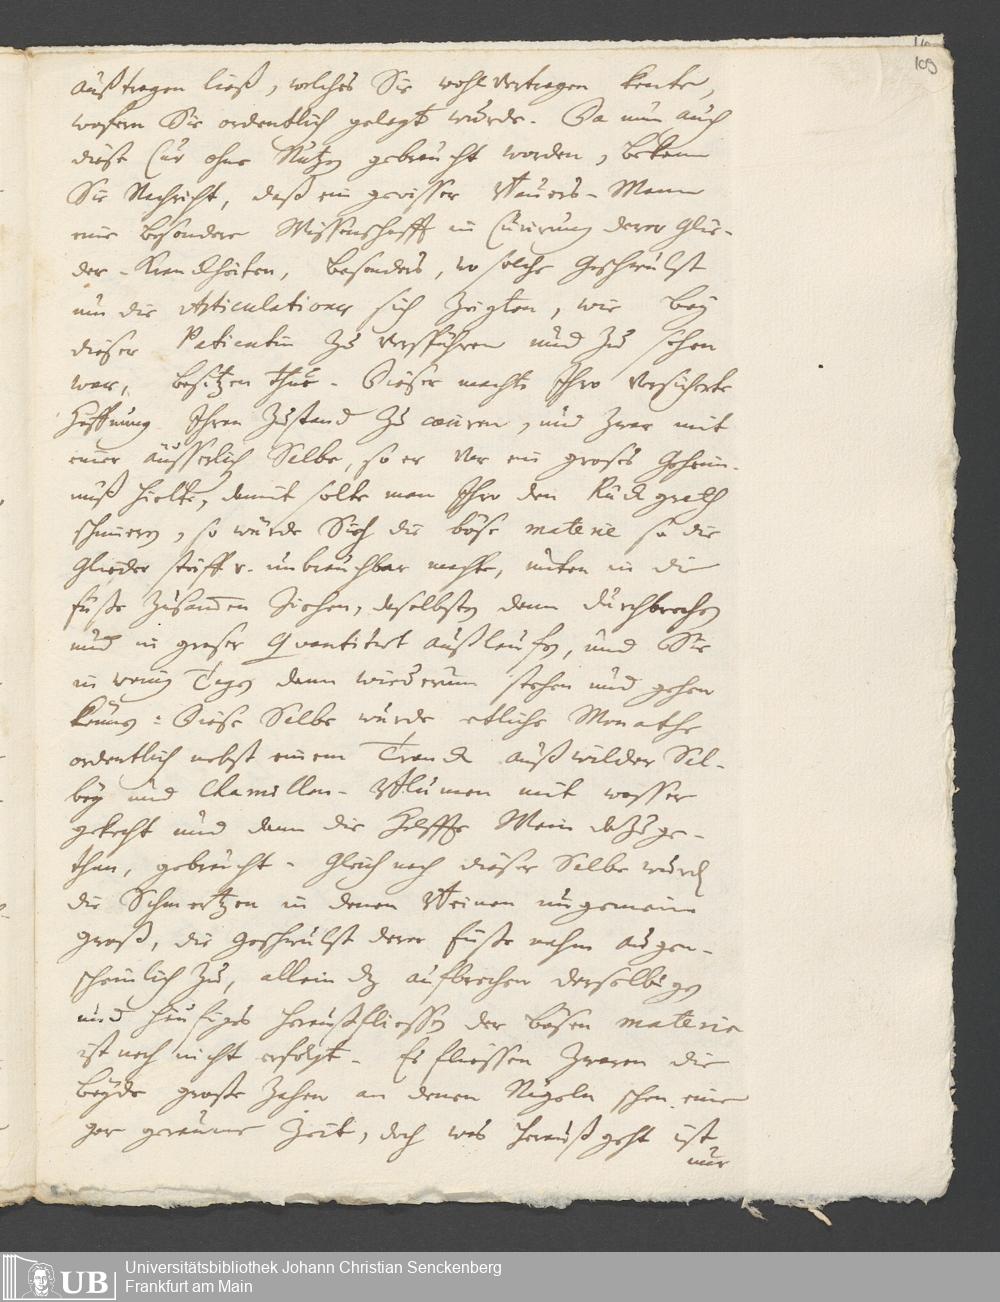 109
außtragen ließ, welches Sie wohl vertragen konte,
wofern Sie ordentlich gelegt wurde. Da nun auch
diese Cur ohne Nutzen gebraucht worden, bekam
Sie Nachricht, daß ein gewisser Bauers-Mann
eine besondere Wissenschafft in Curirung derer Glie-
der-Kranckheiten, besonders, wo solche Geschwulst
um die Articulationes sich zeigten, wie bey
dieser Patientin zu verspühren und zu sehen
war, besitzen thue. Dieser machte Ihro versicherte
Hoffnung Ihren Zustand zu curiren, und zwar mit
einer äusserlich Salbe, so er vor ein groses Geheim-
nuß hielte, damit solte man Ihro den Rückgrath
schmieren, so würde Sich die böse materie so die
Glieder steiff u. unbrauchbar machte, unten in die
füße zusammen ziehen, daselbsten dann durchbrechen
und in groser Quantitaet außlaufen, und Sie
in wenig Tagen dann wiederum stehen und gehen
können: Diese Salbe wurde etliche Monathe
ordentlich nebst einem Tranck auß wilder Sal-
bey und Chamillen-Blumen mit wasser
gekocht und dann die Helffte Wein dazu ge-
than, gebraucht. Gleich nach dieser Salbe wurden
die Schmertzen in denen Beinen ungemein
groß, die Geschwulst derer füße nahm augen-
scheinlich zu, allein das aufbrechen derselbigen
und häufiges heraußfliessen der bösen materie
ist noch nicht erfolgt. Es fliessen zwaren die
beyde große Zehen an denen Nägeln schon eine
gar geraume Zeit, doch was herauß geht ist
nur
UB
Universitätsbibliothek Johann Christian Senckenberg
Frankfurt am Main